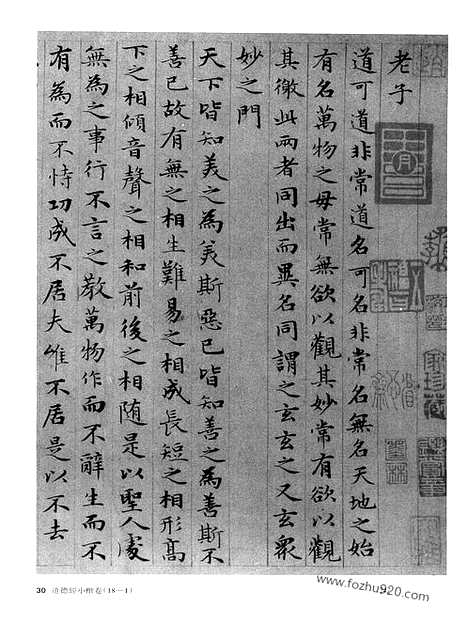 老子
道可道非常道名可名非常名無名天地之始
有名萬物之母常無欲以觀其妙常有欲以觀
其徼此兩者同出而異名同謂之玄玄之又玄衆
妙之門
天下皆知美之為美斯惡已皆知善之為善斯不
善已故有無之相生難易之相成長短之相形高
下之相傾音聲之相和前後之相随是以聖人處
無為之事行不言之教萬物作而不辭生而不
有為而不恃功成不居夫惟不居是以不去
30 道德經小楷卷(18—1)
www.fozhu920.com